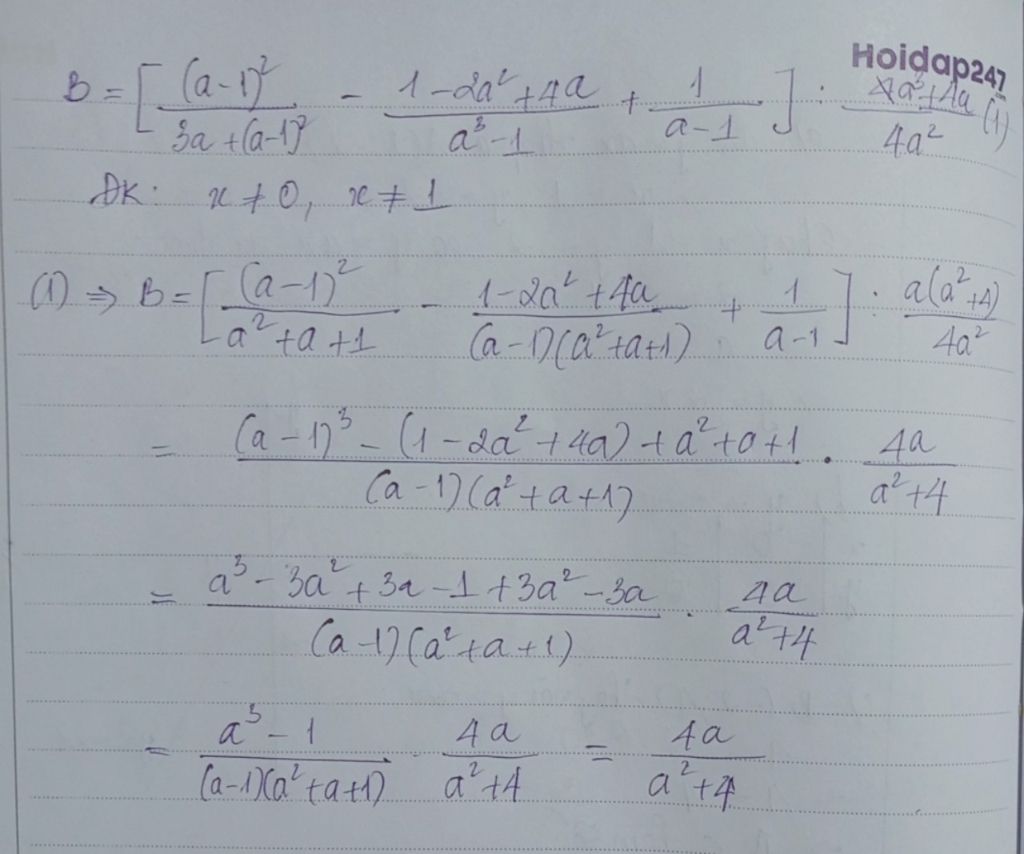 Hoidap247
B = [ (a-1)² / (3a+(a-1)²) - (1-2a²+4a) / (a³-1) + 1 / (a-1) ] : (a³+4a) / 4a² (1)
ĐK: x ≠ 0, x ≠ 1
(1) ⇒ B = [ (a-1)² / (a²+a+1) - (1-2a²+4a) / ((a-1)(a²+a+1)) + 1 / (a-1) ] : a(a²+4) / 4a²
= ((a-1)³ - (1-2a²+4a) + a²+a+1) / ((a-1)(a²+a+1)) . 4a / (a²+4)
= (a³-3a²+3a-1+3a²-3a) / ((a-1)(a²+a+1)) . 4a / (a²+4)
= (a³-1) / ((a-1)(a²+a+1)) . 4a / (a²+4) = 4a / (a²+4)